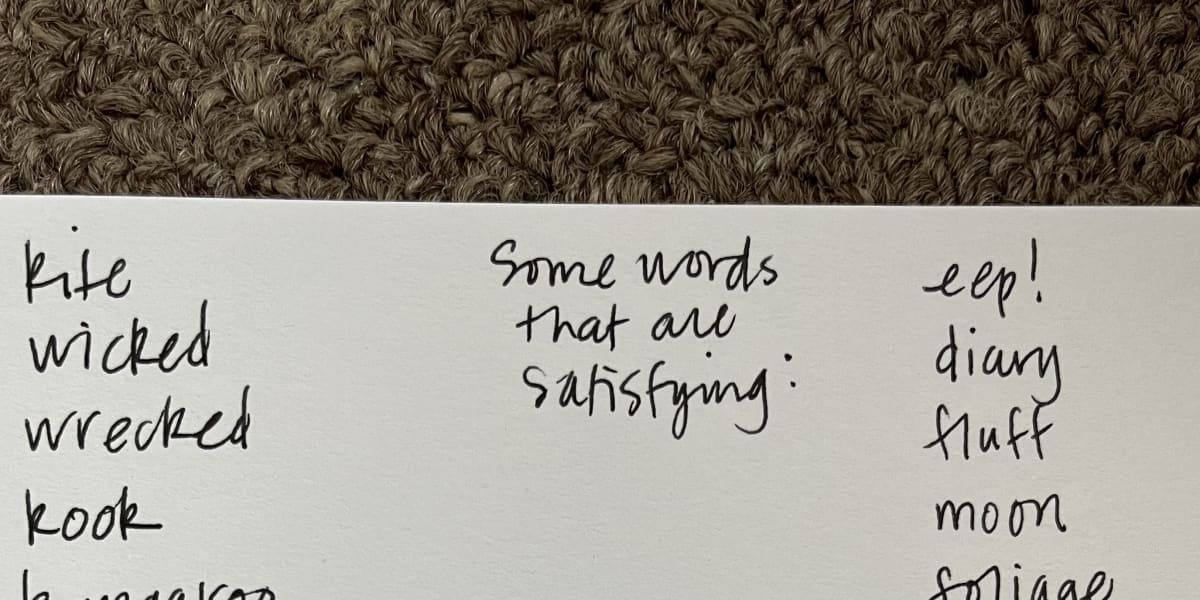 kite
wicked
wrecked
kook
Some words
that are
satisfying:
eep!
diary
fluff
moon
foliage